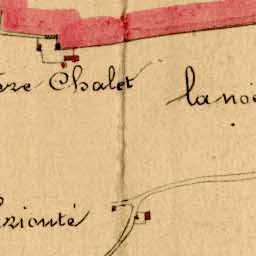 ere Chalet
la noë
rionté